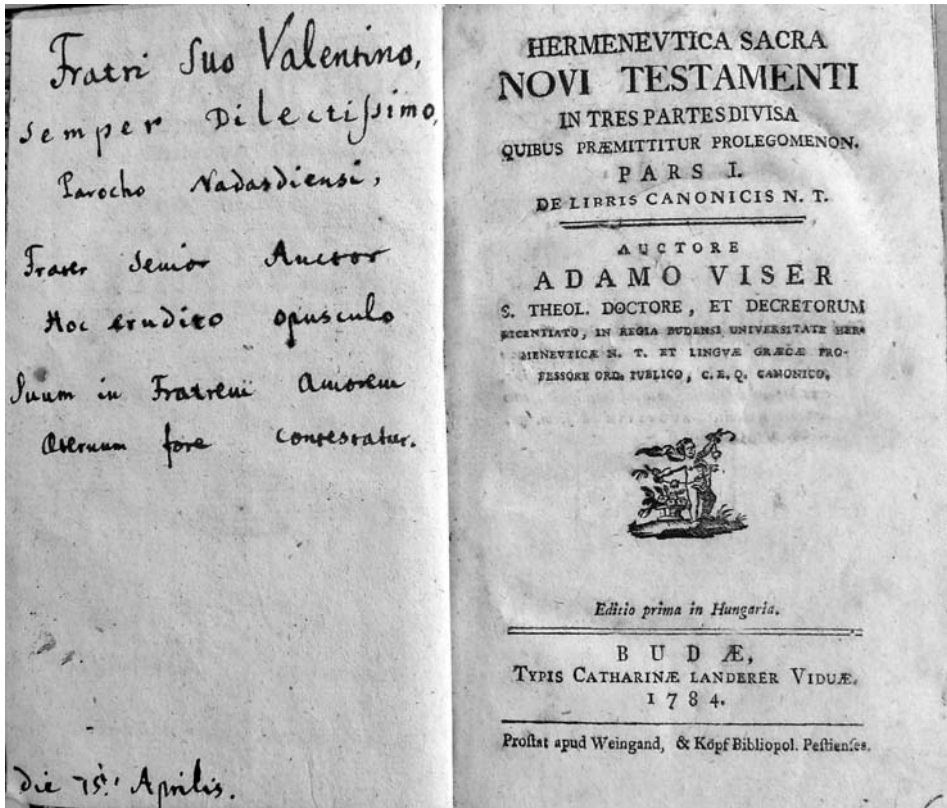 Fratri Suo Valentino,
semper Dilectissimo,
Parocho Nadasdiensi,
Frater Senior Auctor
Hoc erudito opusculo
Suum in Fratrem amorem
Æternum fore contestatur.
die 15. Aprilis.
HERMENEVTICA SACRA
NOVI TESTAMENTI
IN TRES PARTES DIVISA
QUIBUS PRÆMITTITUR PROLEGOMENON.
PARS I.
DE LIBRIS CANONICIS N. T.
AUCTORE
ADAMO VISER
S. THEOL. DOCTORE, ET DECRETORUM
LICENTIATO, IN REGIA BUDENSI UNIVERSITATE HER-
MENEVTICÆ N. T. ET LINGVÆ GRÆCÆ PRO-
FESSORE ORD. PUBLICO, C. E. Q. CANONICO.
Editio prima in Hungaria.
BUDÆ,
TYPIS CATHARINÆ LANDERER VIDUÆ.
1784.
Proſtat apud Weingand, & Köpf Bibliopol. Peſtienſes.